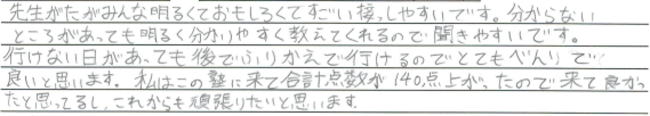 先生がたがみんな明るくておもしろくてすごい接しやすいです。分からない
ところがあっても明るく分かりやすく教えてくれるので聞きやすいです。
行けない日があっても後でふりかえで行けるのでとてもべんりで
良いと思います。私はこの塾に来て合計点数が140点上がったので来て良かっ
たと思ってるし、これからも頑張りたいと思います。